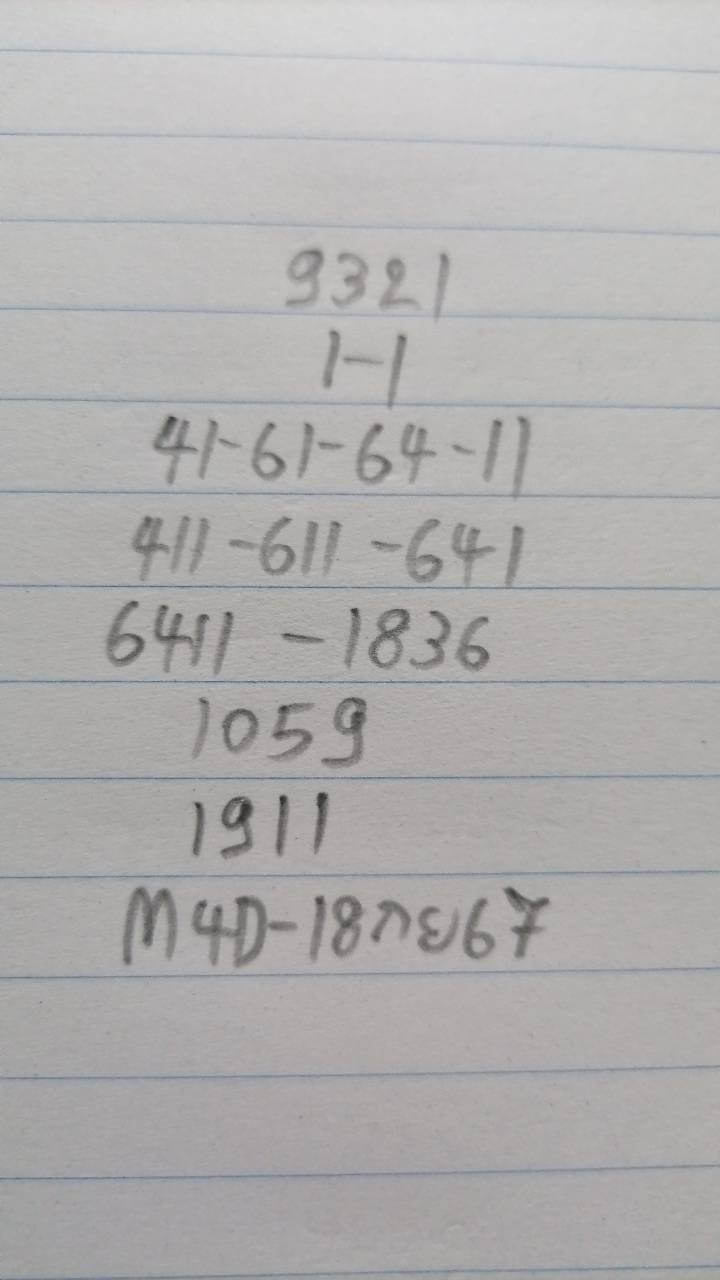 9321
1-1
41-61-64-11
411-611-641
6411-1836
1059
1911
M4D-18กย67